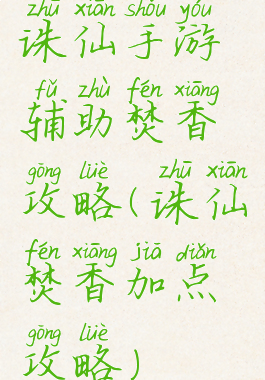 zhū xiān shǒu yóu
诛仙手游
fǔ zhù fén xiāng
辅助焚香
gōng lüè zhū xiān
攻略(诛仙
fén xiāng jiā diǎn
焚香加点
gōng lüè
攻略)